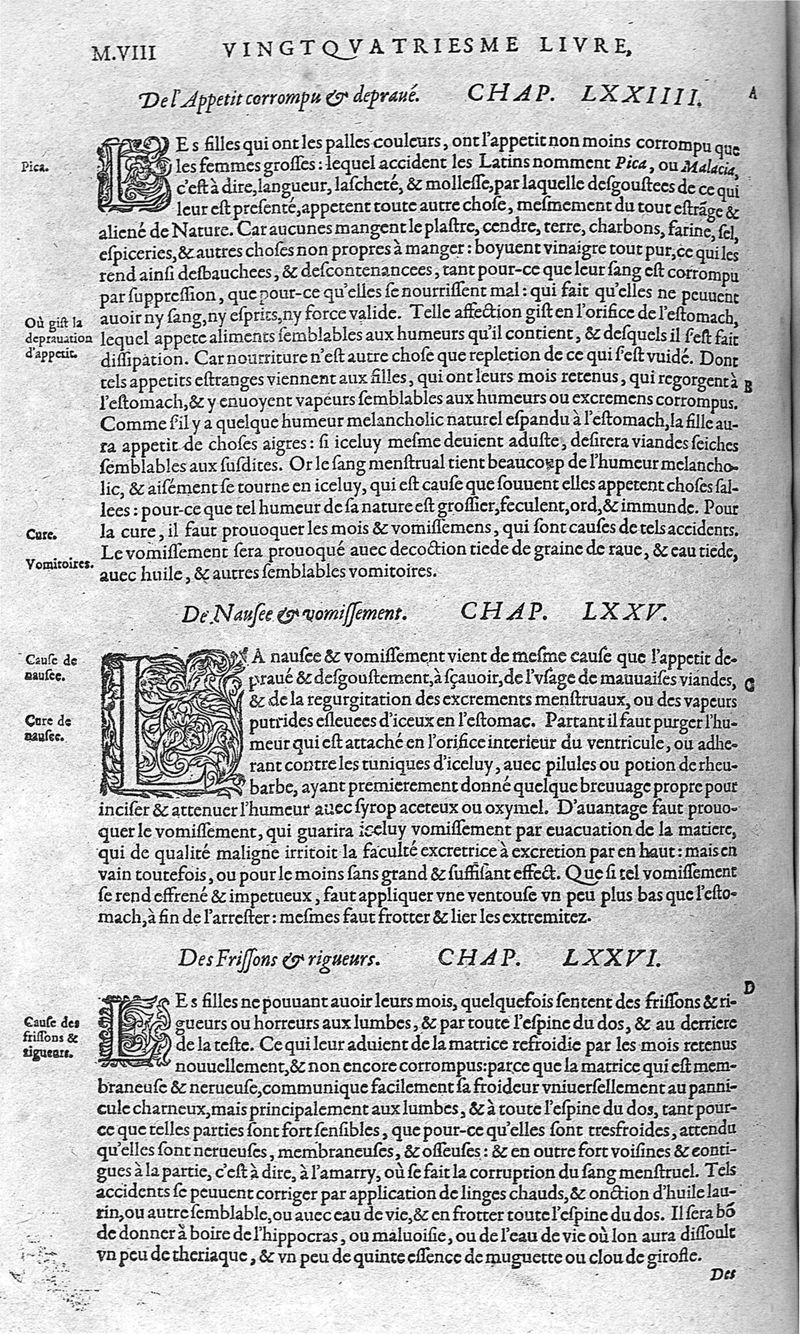 M.VIII VINGTQVATRIESME LIVRE,
De l'Appetit corrompu & depraué. CHAP. LXXIIII. A
LEs filles qui ont les palles couleurs, ont l'appetit non moins corrompu que
Pica. les femmes grosses : lequel accident les Latins nomment Pica, ou Malacia,
c'est à dire, langueur, lascheté, & mollesse, par laquelle desgoustees de ce qui
leur est presenté, appetent toute autre chose, mesmement du tout estrãge &
aliené de Nature. Car aucunes mangent le plastre, cendre, terre, charbons, farine, sel,
espiceries, & autres choses non propres à manger : boyuent vinaigre tout pur, ce qui les
rend ainsi desbauchees, & descontenancees, tant pour-ce que leur sang est corrompu
par suppression, que pour-ce qu'elles se nourrissent mal : qui fait qu'elles ne peuuent
Où gist la auoir ny sang, ny esprits, ny force valide. Telle affection gist en l'orifice de l'estomach,
deprauation lequel appete aliments semblables aux humeurs qu'il contient, & desquels il s'est fait
d'appetit. dissipation. Car nourriture n'est autre chose que repletion de ce qui s'est vuidé. Dont
tels appetits estranges viennent aux filles, qui ont leurs mois retenus, qui regorgent à B
l'estomach, & y enuoyent vapeurs semblables aux humeurs ou excremens corrompus.
Comme s'il y a quelque humeur melancholic naturel espandu à l'estomach, la fille au-
ra appetit de choses aigres : si iceluy mesme deuient aduste, desirera viandes seiches
semblables aux susdites. Or le sang menstrual tient beaucoup de l'humeur melancho-
lic, & aisément se tourne en iceluy, qui est cause que souuent elles appetent choses sal-
lees : pour-ce que tel humeur de sa nature est grossier, feculent, ord, & immunde. Pour
Cure. la cure, il faut prouoquer les mois & vomissemens, qui sont causes de tels accidents.
Vomitoires. Le vomissement sera prouoqué auec decoction tiede de graine de raue, & eau tiede,
auec huile, & autres semblables vomitoires.
De Nausee & vomissement. CHAP. LXXV.
Cause de nausee. LA nausee & vomissement vient de mesme cause que l'appetit de-
praué & desgoustement, à sçauoir, de l'vsage de mauuaises viandes, C
& de la regurgitation des excrements menstruaux, ou des vapeurs
Cure de nausee. putrides esleuees d'iceux en l'estomac. Partant il faut purger l'hu-
meur qui est attaché en l'orifice interieur du ventricule, ou adhe-
rant contre les tuniques d'iceluy, auec pilules ou potion de rheu-
barbe, ayant premierement donné quelque breuuage propre pour
inciser & attenuer l'humeur auec syrop aceteux ou oxymel. D'auantage faut prouo-
quer le vomissement, qui guarira iceluy vomissement par euacuation de la matiere,
qui de qualité maligne irritoit la faculté excretrice à excretion par en haut : mais en
vain toutefois, ou pour le moins sans grand & suffisant effect. Que si tel vomissement
se rend effrené & impetueux, faut appliquer vne ventouse vn peu plus bas que l'esto-
mach, à fin de l'arrester : mesmes faut frotter & lier les extremitez.
Des Frissons & rigueurs. CHAP. LXXVI.
D
LEs filles ne pouuant auoir leurs mois, quelquefois sentent des frissons & ri-
Cause des gueurs ou horreurs aux lumbes, & par toute l'espine du dos, & au derriere
frissons & de la teste. Ce qui leur aduient de la matrice refroidie par les mois retenus
rigueurs. nouuellement, & non encore corrompus : parce que la matrice qui est mem-
braneuse & nerueuse, communique facilement sa froideur vniuersellement au panni-
cule charneux, mais principalement aux lumbes, & à toute l'espine du dos, tant pour-
ce que telles parties sont fort sensibles, que pour-ce qu'elles sont tresfroides, attendu
qu'elles sont nerueuses, membraneuses, & osseuses : & en outre fort voisines & conti-
gues à la partie, c'est à dire, à l'amarry, où se fait la corruption du sang menstruel. Tels
accidents se peuuent corriger par application de linges chauds, & onction d'huile lau-
rin, ou autre semblable, ou auec eau de vie, & en frotter toute l'espine du dos. Il sera bõ
de donner à boire de l'hippocras, ou maluoisie, ou de l'eau de vie où lon aura dissoult
vn peu de theriaque, & vn peu de quinte essence de muguette ou clou de girofle.
Des